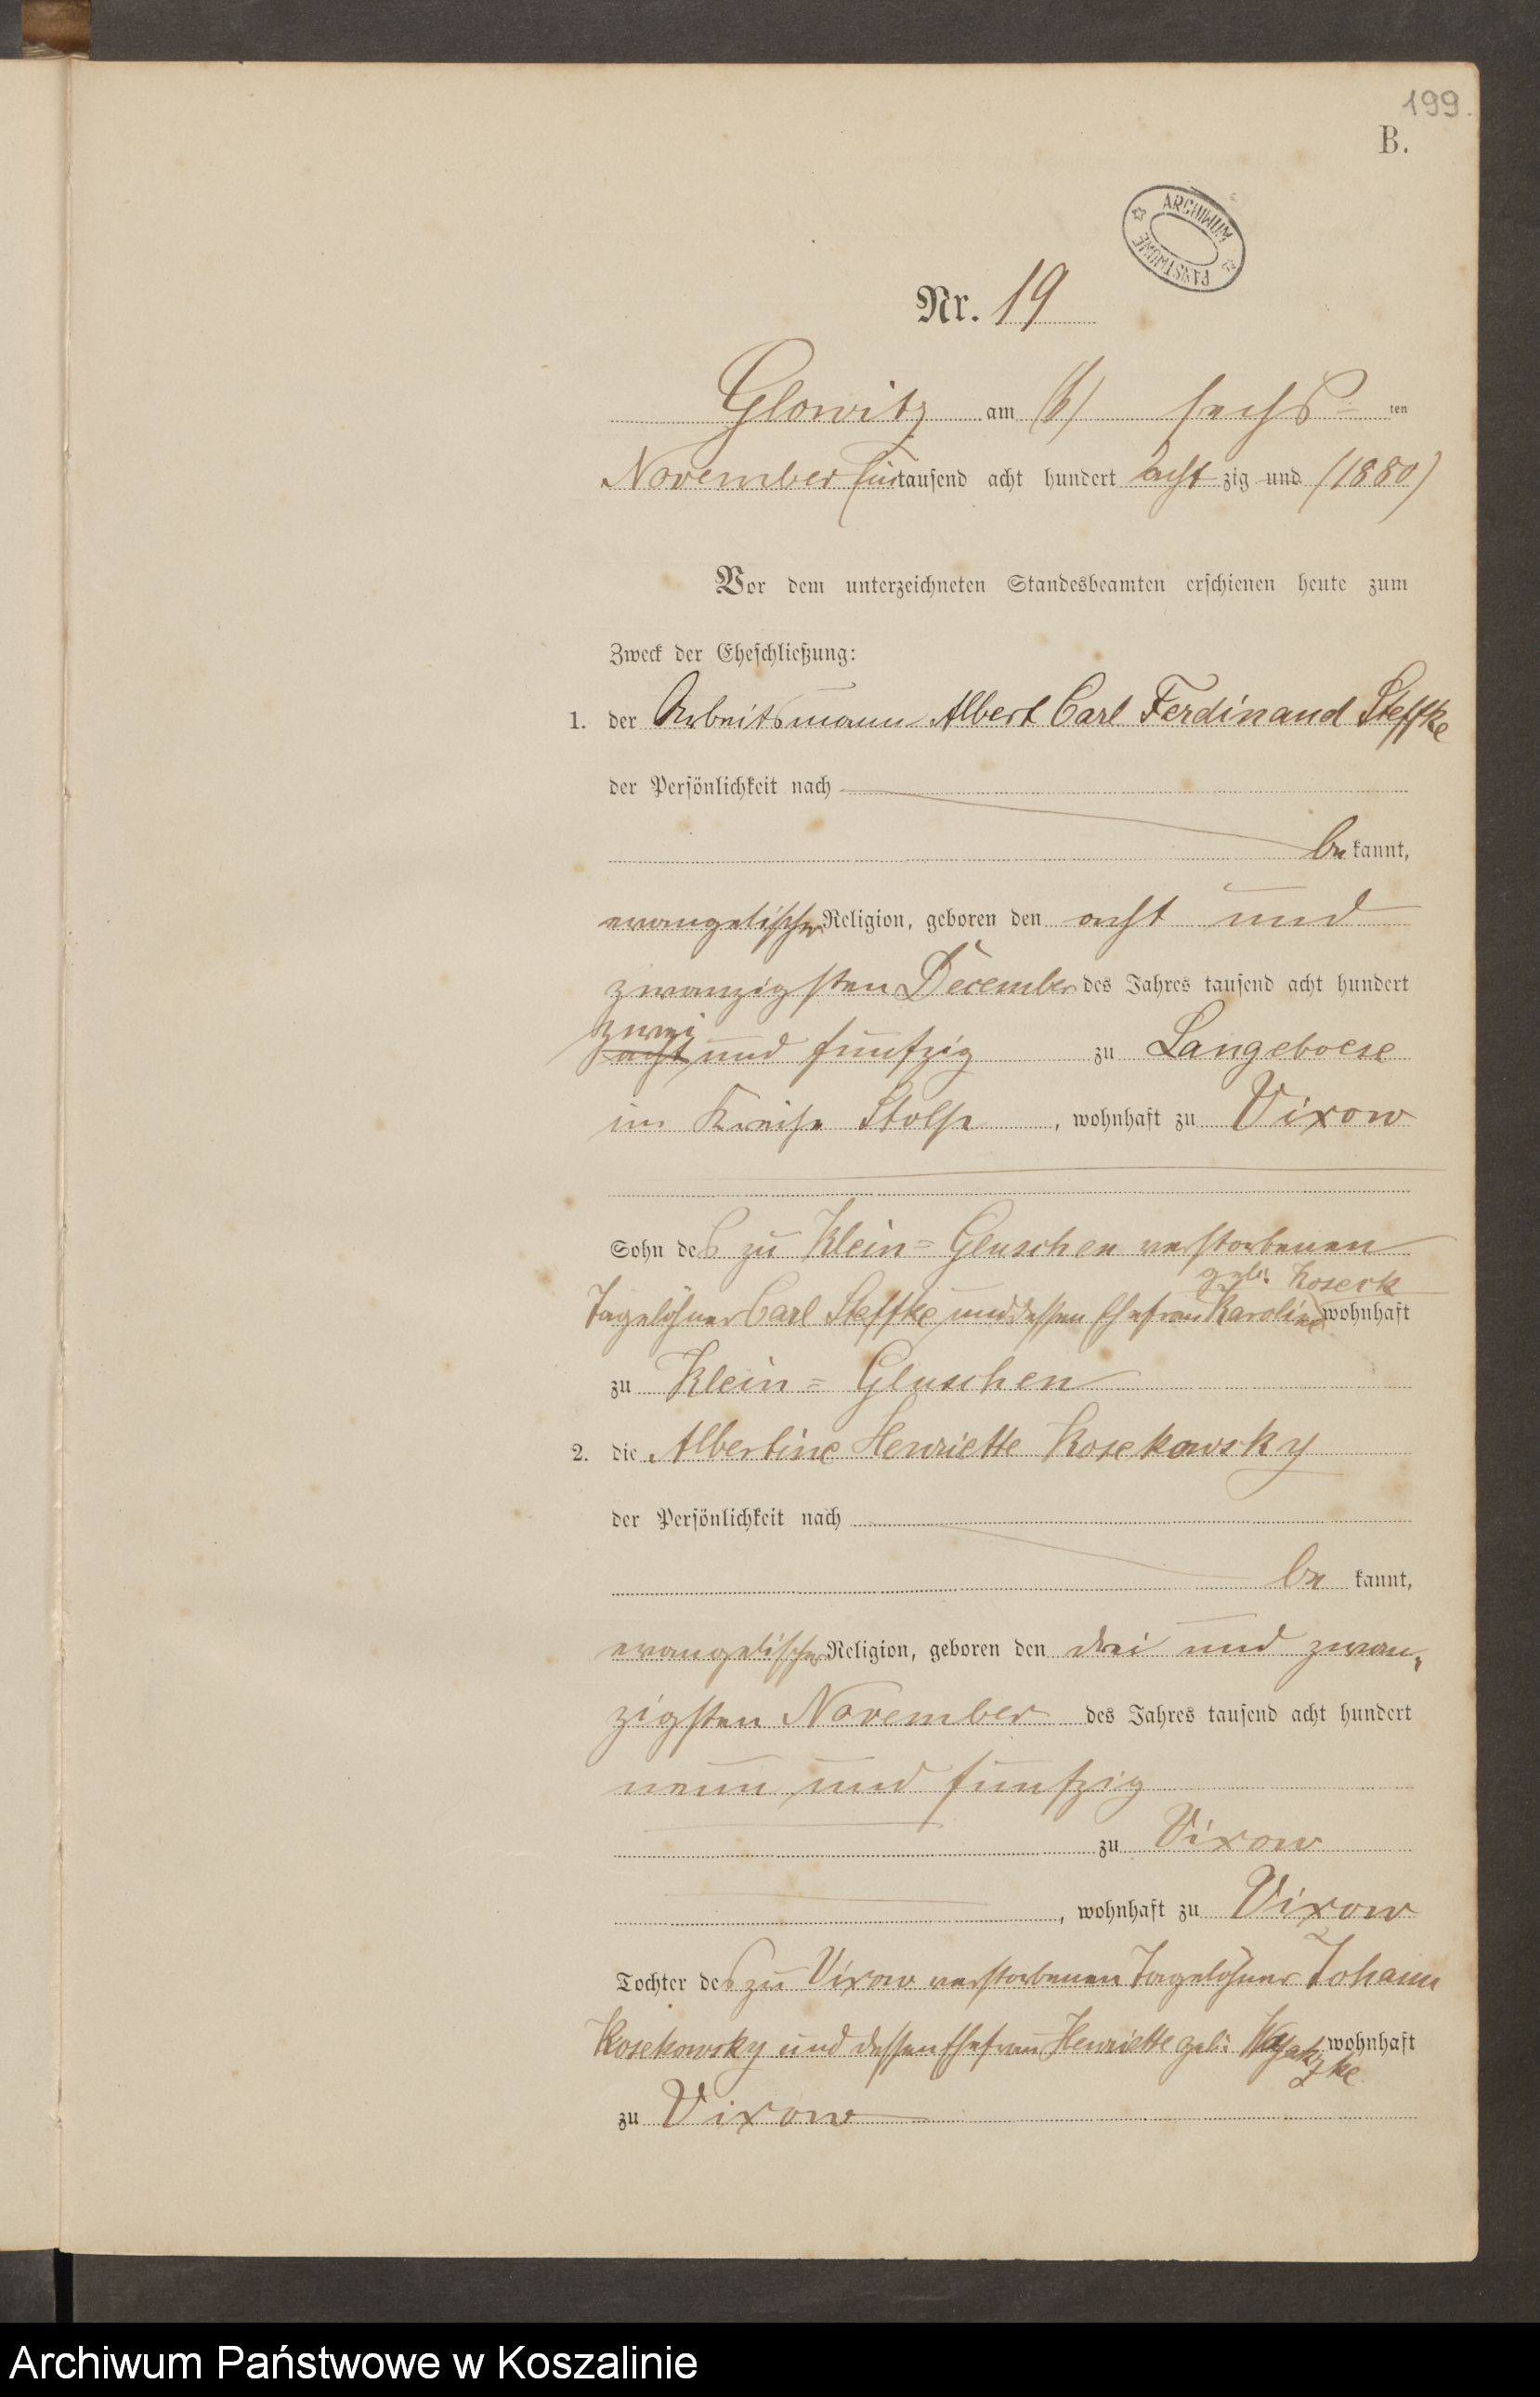 199.
B.
ARCHIWUM PAŃSTWOWE
Nr. 19
Glowitz am (6) sechs ten
November Eintausend acht hundert acht zig und (1880)
Vor dem unterzeichneten Standesbeamten erschienen heute zum
Zweck der Eheschließung:
1. der Arbeitsmann Albert Carl Ferdinand Steffke
der Persönlichkeit nach
be kannt,
evangelischer Religion, geboren den acht und
zwanzigsten December des Jahres tausend acht hundert
zwei
acht und fünfzig zu Langeboese
im Kreise Stolp, wohnhaft zu Vixow
Sohn des zu Klein=Gluschen verstorbenen
geb: Koseck
Tagelöhner Carl Steffke und dessen Ehefrau Karoline wohnhaft
zu Klein=Gluschen
2. die Albertine Henriette Kosekowsky
der Persönlichkeit nach
be kannt,
evangelischer Religion, geboren den drei und zwan-
zigsten November des Jahres tausend acht hundert
neun und fünfzig
zu Vixow
, wohnhaft zu Vixow
Tochter des zu Vixow verstorbenen Tagelöhner Johann
Kosekowsky und dessen Ehefrau Henriette geb: wohnhaft
zu Vixow
Archiwum Państwowe w Koszalinie